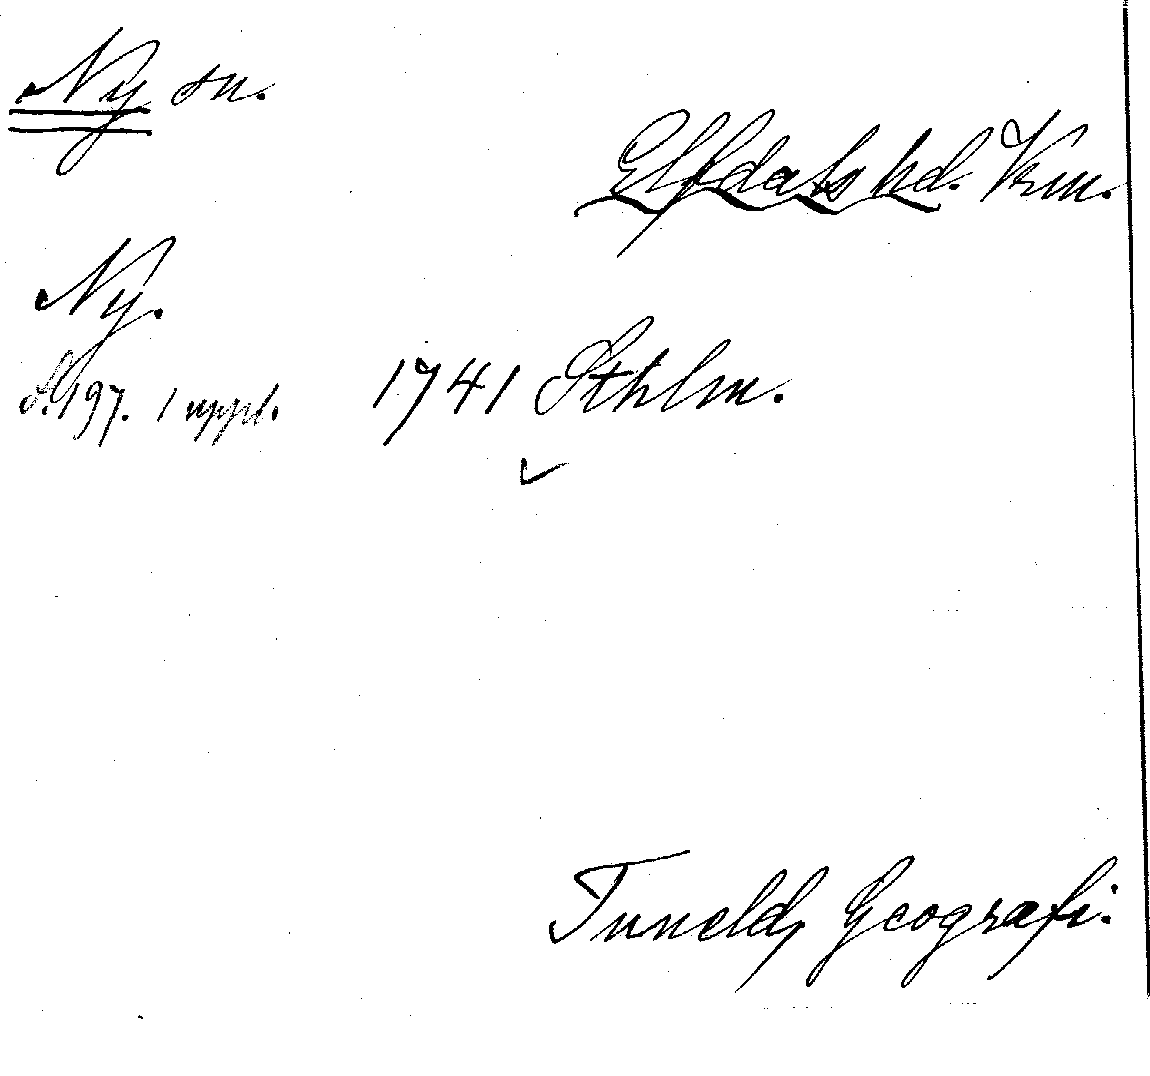 Ny sn.
Elfdals hd. Vrm.
Ny.
S. 197. 1 uppl. 1741 Sthlm.
Tuneld, Geografi.